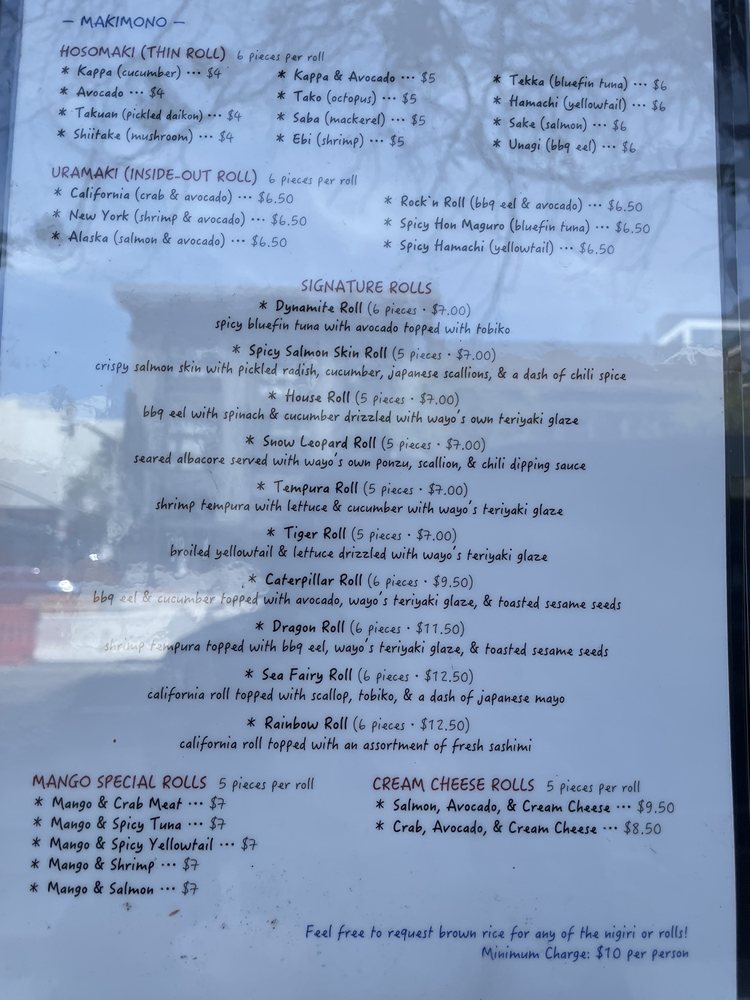 — MAKIMONO —
HOSOMAKI (THIN ROLL) 6 pieces per roll
* Kappa (cucumber) ··· $4
* Avocado ··· $4
* Takuan (pickled daikon) ··· $4
* Shiitake (mushroom) ··· $4
* Kappa & Avocado ··· $5
* Tako (octopus) ··· $5
* Saba (mackerel) ··· $5
* Ebi (shrimp) ··· $5
* Tekka (bluefin tuna) ··· $6
* Hamachi (yellowtail) ··· $6
* Sake (salmon) ··· $6
* Unagi (bbq eel) ··· $6
URAMAKI (INSIDE-OUT ROLL) 6 pieces per roll
* California (crab & avocado) ··· $6.50
* New York (shrimp & avocado) ··· $6.50
* Alaska (salmon & avocado) ··· $6.50
* Rock`n Roll (bbq eel & avocado) ··· $6.50
* Spicy Hon Maguro (bluefin tuna) ··· $6.50
* Spicy Hamachi (yellowtail) ··· $6.50
SIGNATURE ROLLS
* Dynamite Roll (6 pieces · $7.00)
spicy bluefin tuna with avocado topped with tobiko
* Spicy Salmon Skin Roll (5 pieces · $7.00)
crispy salmon skin with pickled radish, cucumber, japanese scallions, & a dash of chili spice
* House Roll (5 pieces · $7.00)
bbq eel with spinach & cucumber drizzled with wayo's own teriyaki glaze
* Snow Leopard Roll (5 pieces · $7.00)
seared albacore served with wayo's own ponzu, scallion, & chili dipping sauce
* Tempura Roll (5 pieces · $7.00)
shrimp tempura with lettuce & cucumber with wayo's teriyaki glaze
* Tiger Roll (5 pieces · $7.00)
broiled yellowtail & lettuce drizzled with wayo's teriyaki glaze
* Caterpillar Roll (6 pieces · $9.50)
bbq eel & cucumber topped with avocado, wayo's teriyaki glaze, & toasted sesame seeds
* Dragon Roll (6 pieces · $11.50)
shrimp tempura topped with bbq eel, wayo's teriyaki glaze, & toasted sesame seeds
* Sea Fairy Roll (6 pieces · $12.50)
california roll topped with scallop, tobiko, & a dash of japanese mayo
* Rainbow Roll (6 pieces · $12.50)
california roll topped with an assortment of fresh sashimi
MANGO SPECIAL ROLLS 5 pieces per roll
* Mango & Crab Meat ··· $7
* Mango & Spicy Tuna ··· $7
* Mango & Spicy Yellowtail ··· $7
* Mango & Shrimp ··· $7
* Mango & Salmon ··· $7
CREAM CHEESE ROLLS 5 pieces per roll
* Salmon, Avocado, & Cream Cheese ··· $9.50
* Crab, Avocado, & Cream Cheese ··· $8.50
Feel free to request brown rice for any of the nigiri or rolls!
Minimum Charge: $10 per person